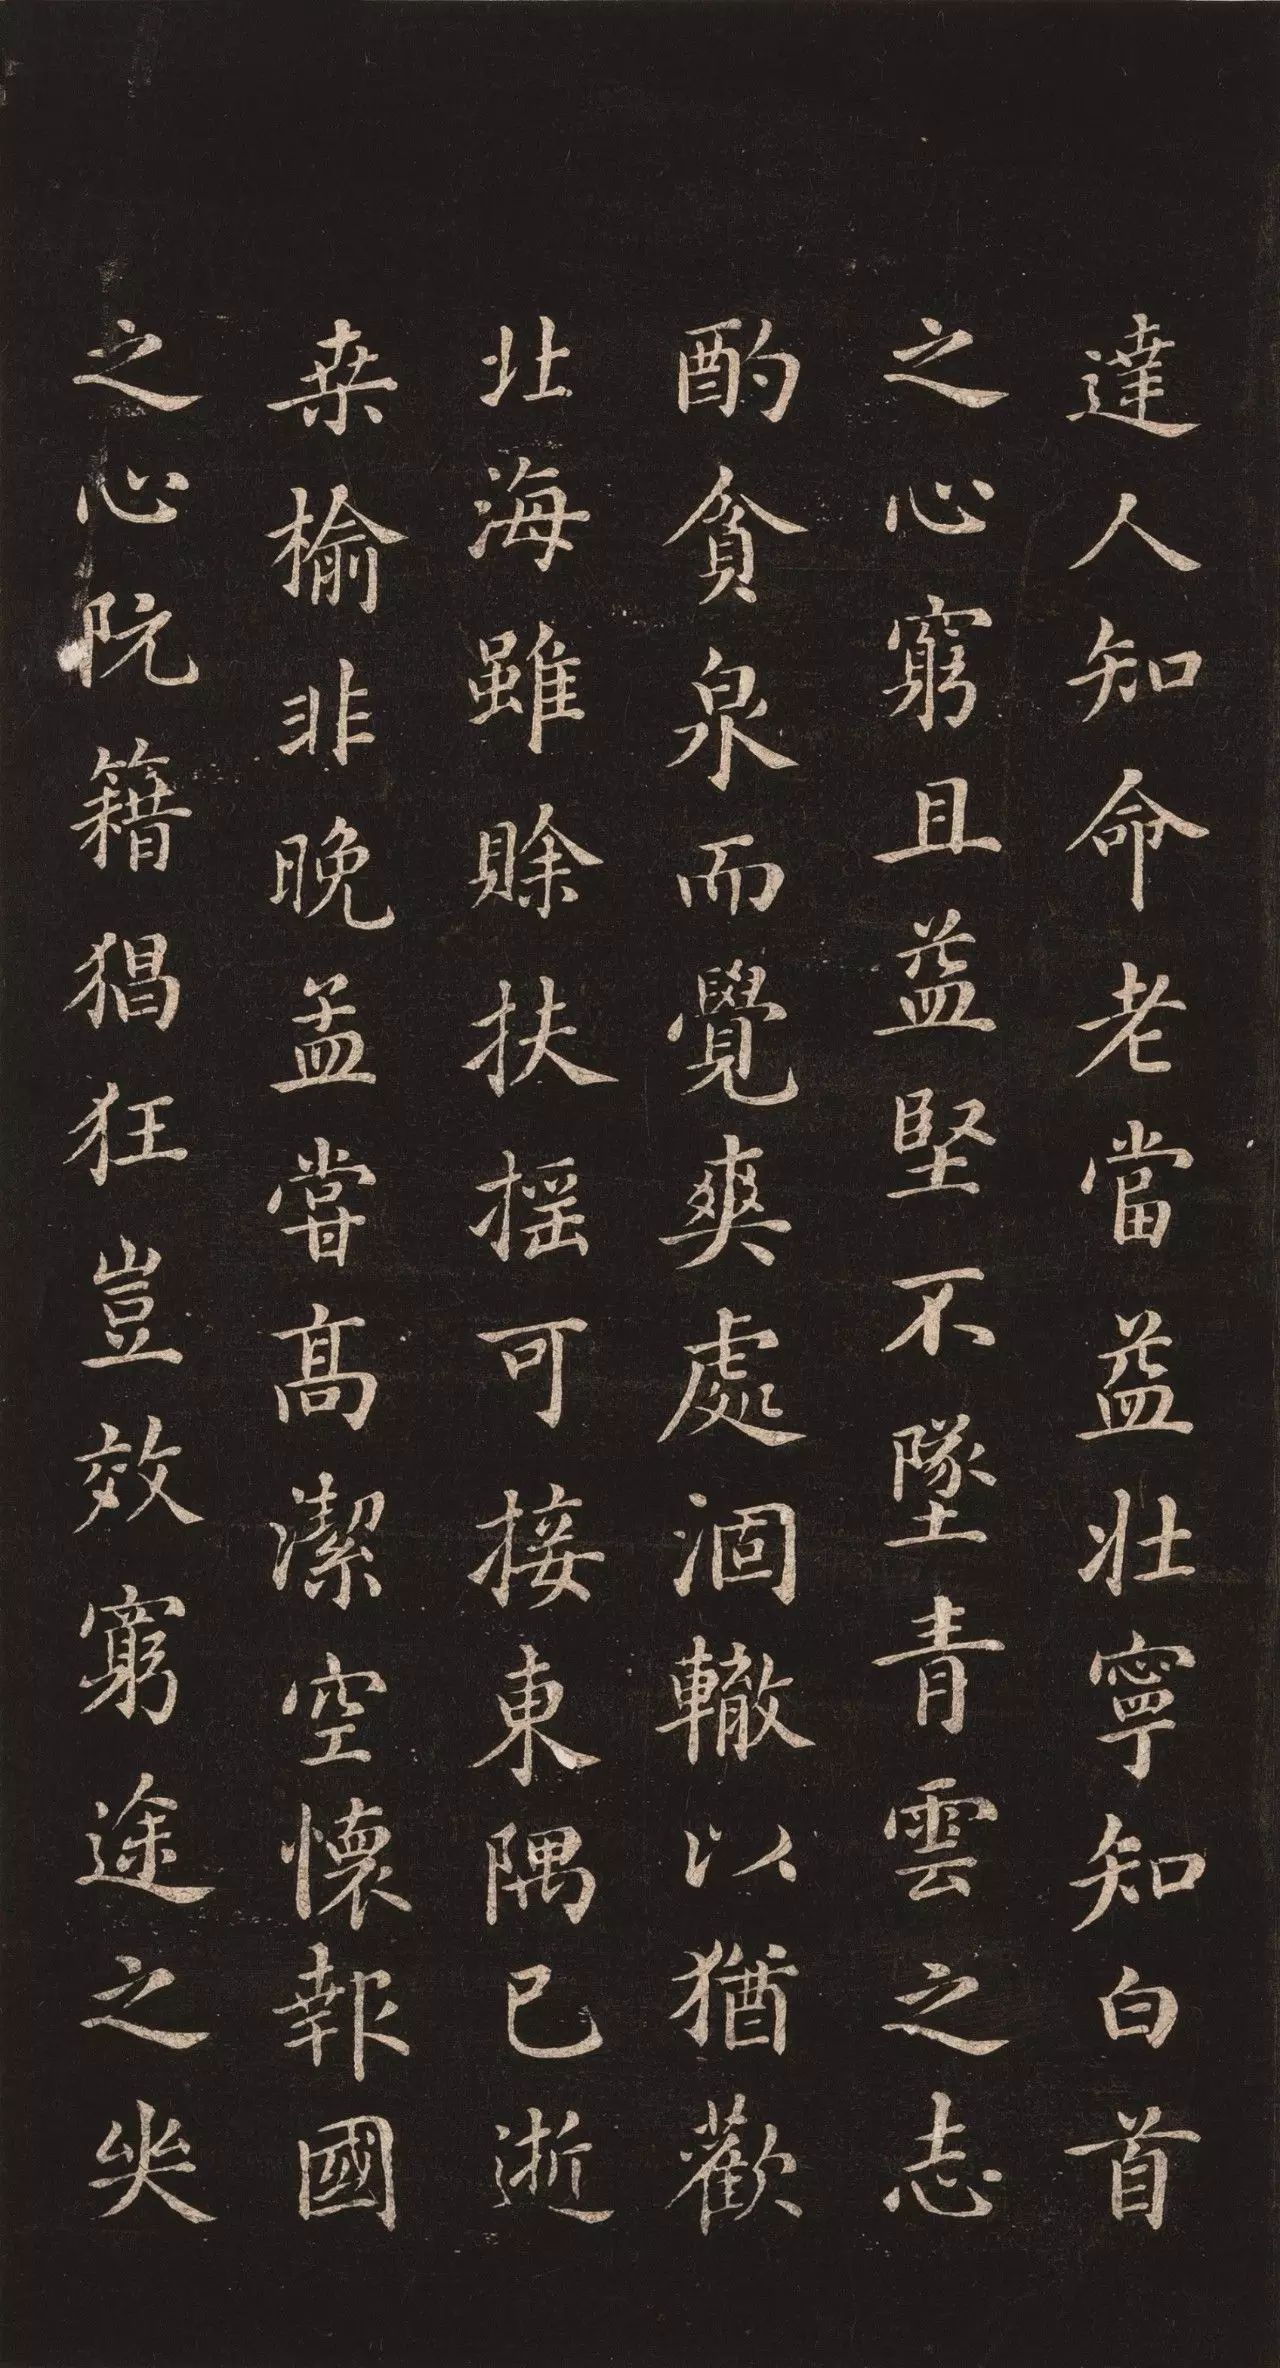 達人知命老當益壯寧知白首
之心窮且益堅不墜青雲之志
酌貪泉而覺爽處涸轍以猶歡
北海雖賖扶揺可接東隅已逝
桒榆非晚孟甞髙潔空懷報國
之心阮籍猖狂豈效窮途之哭